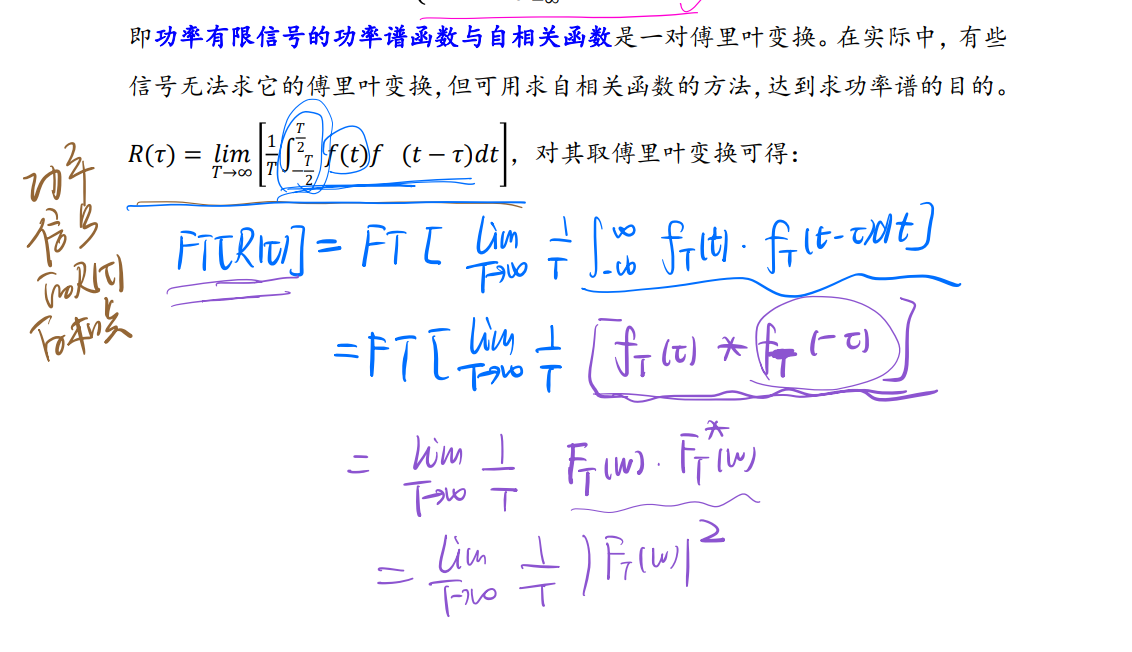 即功率有限信号的功率谱函数与自相关函数是一对傅里叶变换。在实际中，有些
信号无法求它的傅里叶变换，但可用求自相关函数的方法，达到求功率谱的目的。
R(τ) = lim_{T→∞} [1/T ∫_{-T/2}^{T/2} f(t)f (t − τ)dt]，对其取傅里叶变换可得：
功率
信号
R(τ)
FT[R(τ)] = FT [ lim_{T→∞} 1/T ∫_{-∞}^{∞} f_T(t) · f_T(t-τ)dt ]
= FT [ lim_{T→∞} 1/T [ f_T(τ) * f_T(-τ) ]
= lim_{T→∞} 1/T F_T(w) · F_T^*(w)
= lim_{T→∞} 1/T |F_T(w)|^2